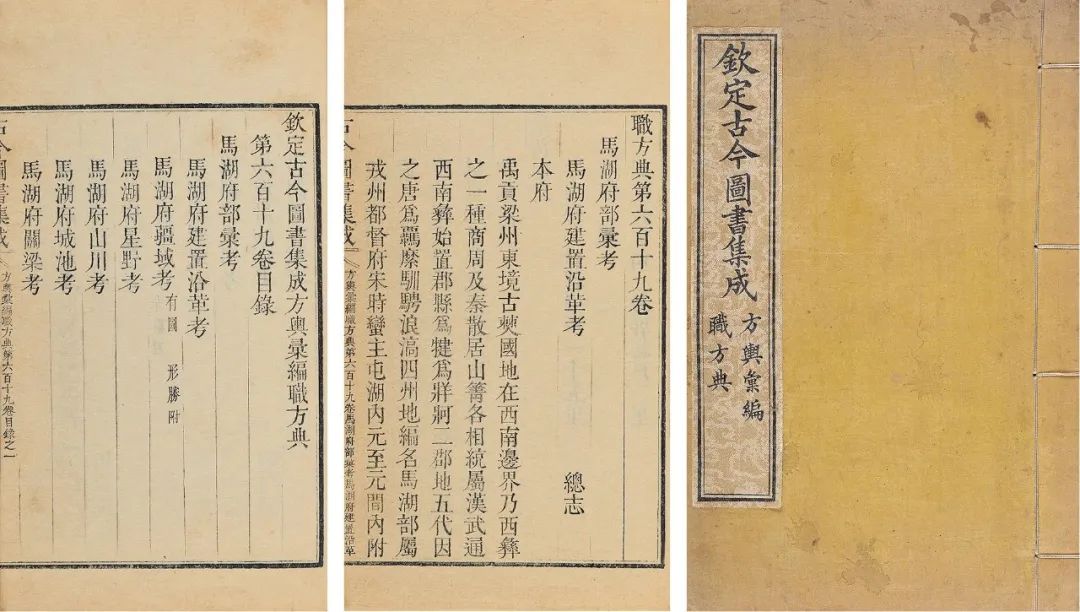 欽定古今圖書集成方輿彙編職方典
第六百十九卷目錄
馬湖府部彙考
馬湖府建置沿革考
馬湖府疆域考 有圖 形勝附
馬湖府星野考
馬湖府山川考
馬湖府城池考
馬湖府關梁考
古今圖書集成 方輿彙編職方典第六百十九卷目錄之一
職方典第六百十九卷
馬湖府部彙考
馬湖府建置沿革考 總志
本府
禹貢梁州東境古僰國地在西南邊界乃西彝
之一種商周及秦散居山箐各相統屬漢武通
西南彝始置郡縣爲犍爲牂牁二郡地五代因
之唐爲羈縻馴騁浪滈四州地編名馬湖部屬
戎州都督府宋時蠻主屯湖內元至元間內附
古今圖書集成 方輿彙編職方典第六百十九卷馬湖府部彙考馬湖府建置沿革
欽定古今圖書集成
方輿彙編
職方典